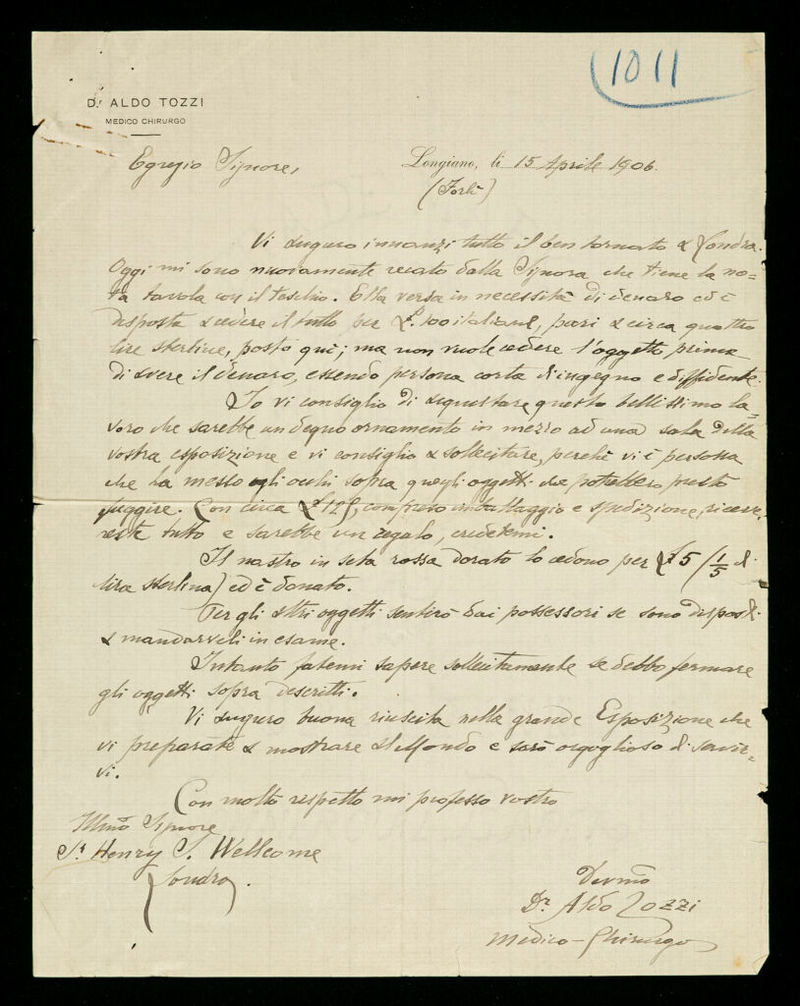 1011
Dr. ALDO TOZZI
MEDICO CHIRURGO
Egregio Signore,
Longiano, li 15 Aprile 1906.
(Forlì)
Vi auguro innanzi tutto il ben tornato a Londra.
Oggi mi sono nuovamente recato dalla Signora che tiene la no=
ta tavola con il teschio. Ella versa in necessità di denaro ed è
disposta a cedere il tutto per £. 100 italiane, pari a circa quattro
lire sterline, posto qui; ma non vuole cedere l'oggetto prima
di avere il denaro, essendo persona corta d'ingegno e diffidente.
Io vi consiglio di acquistare questo bellissimo la=
voro che sarebbe un degno ornamento in mezzo ad una sala della
vostra esposizione e vi consiglio a sollecitare, perchè vi è persona
che ha messo gli occhi sopra quegli oggetti che potrebbero presto
fuggire. Con circa £ 125, compreso imballaggio e spedizione, riceve=
reste tutto e sarebbe un regalo, credetemi.
Il nastro in seta rossa dorato lo cedono per £ 5 (1/5 di
lira sterlina) ed è donato.
Per gli altri oggetti sentirò dai possessori se sono disposti
a mandarveli in esame.
Intanto fatemi sapere sollecitamente se debbo fermare
gli oggetti sopra descritti.
Vi auguro buona riuscita nella grande Esposizione che
vi preparate a mostrare al Mondo e sarò orgoglioso di servir=
vi.
Con molto rispetto mi professo vostro
Illmo Signore
Sr. Henry S. Wellcome
Londra.
Devmo
Dr. Aldo Tozzi
Medico-Chirurgo